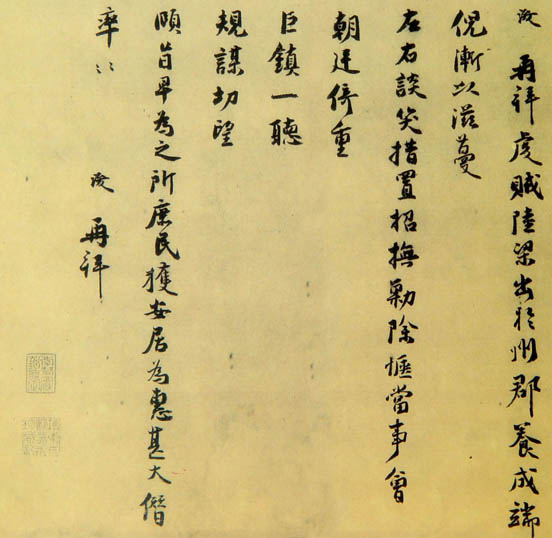 浚 再拜虔贼陆梁出於州郡養成端
倪漸以滋蔓
左右談笑措置招撫勦除惬當事會
朝廷倚重
巨鎮一聽
規謀切望
頤旨早為之所庶民獲安居為惠甚大僭
率〻
浚 再拜